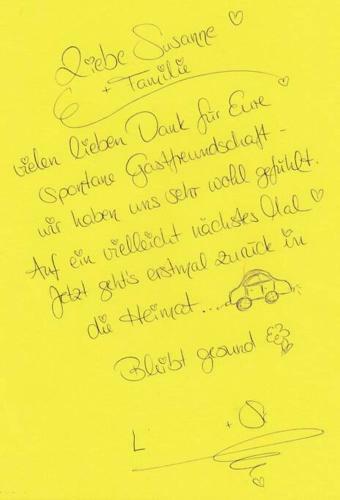 Liebe Susanne
+ Familie
vielen lieben Dank für Eure
spontane Gastfreundschaft -
wir haben uns sehr wohl gefühlt.
Auf ein vielleicht nächstes Mal
Jetzt geht's erstmal zurück in
die Heimat...
Bleibt gesund
L + S